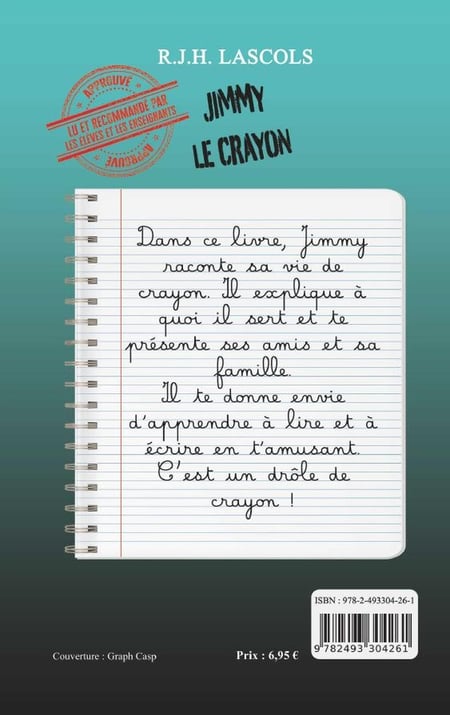 R.J.H. LASCOLS
APPROUVÉ
LU ET RECOMMANDÉ PAR
LES ÉLÈVES ET LES ENSEIGNANTS
APPROUVÉ
JIMMY
LE CRAYON
Dans ce livre, Jimmy
raconte sa vie de
crayon. Il explique à
quoi il sert et te
présente ses amis et sa
famille.
Il te donne envie
d'apprendre à lire et à
écrire en t'amusant.
C'est un drôle de
crayon !
ISBN : 978-2-493304-26-1
9 782493 304261
Couverture : Graph Casp
Prix : 6,95 €